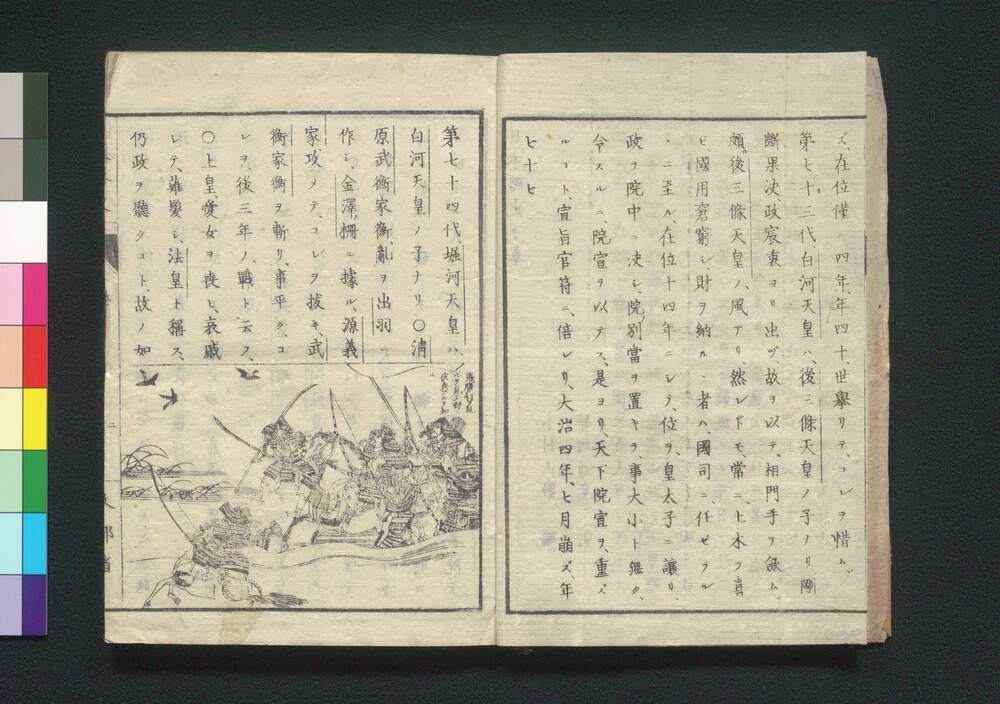 ズ、在位僅ニ四年、年四十、世擧リテ、コレヲ惜ム、
第七十三代、白河天皇ハ、後三條天皇ノ子ナリ剛
斷果決、政宸衷ヨリ出ヅ、故ヲ以テ、相門手ヲ斂ム、
頗後三條天皇ノ、風アリ然レドモ、常ニ、土木ヲ喜
ビ、國用窘窮シ財ヲ納ルヽ者ハ、國司ニ任ゼラル
ヽニ至ル、在位十四年ニシテ、位ヲ、皇太子ニ讓リ、
政ヲ院中ニ決シ、院別當ヲ置キテ、事大小ト無ク、
令スルニ、院宣ヲ以テス、是ヨリ、天下院宣ヲ、重ズ
ルコト、宣旨官符ニ、倍レリ、大治四年、七月崩ズ、年
七十七
第七十四代、堀河天皇ハ、
白河天皇ノ子ナリ〇淸
原武衡家衡、亂ヲ出羽
作シ、金澤柵ニ據ル、源義
家攻メテ、コレヲ拔キ、武
衡家衡ヲ斬リ、事平ク、コ
レヲ、後三年ノ、戰ト云フ、
〇上皇、愛女ヲ喪ヒ、哀戚
シテ、薙髮シ、法皇ト稱ス、
仍政ヲ聽クコト、故ノ如